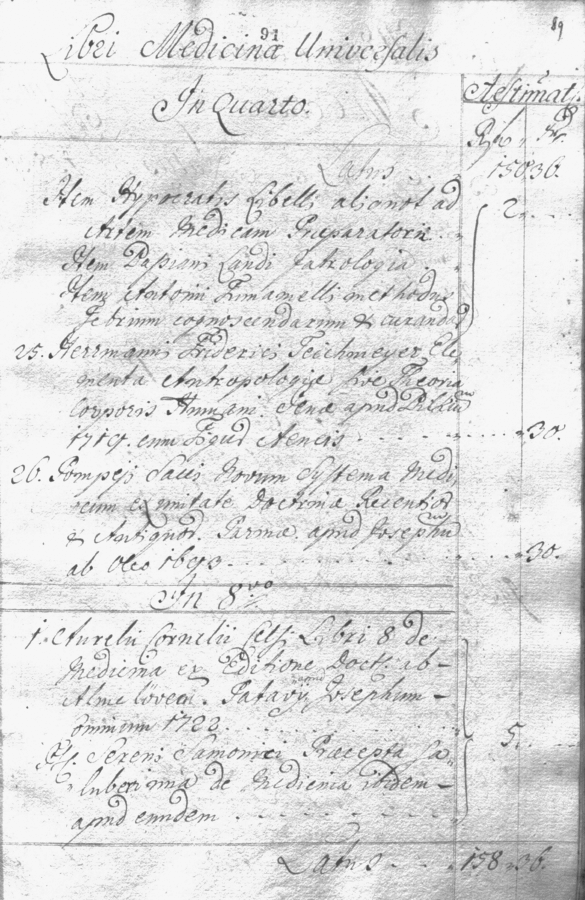 89
91
Libri Medicinæ Universalis
In Quarto.
Æstimat:
Rfn. Xr.
Latus
150 36.
Item Hypocratis Libelli aliquot ad 2.
Artem Medicam Præparatorii
Item Papiani Landi Jatrologia
Item Antonii Fumanelli methodus
Febrium cognoscendarum & curandar
25. Herrmanni Friderici Teichmeyer Ele-
menta Antropologiæ sive Theoria
Corporis Humani. Jenæ apud Bilckium
1719. cum Figuris Aeneis 30.
26. Pompeji Sacci Novum Systema Medi-
cum ex unitate Doctrinæ Recentior
& Antiquor. Parmæ. apud Josephum
ab Oleo 1693. 30.
In 8vo
1. Aurelii Cornelii Celsi Libri 8 de
Medicina ex Editione Doctis: ab
Almeloveen. Patavii Josephum
Cominum 1722.
It. Sereni Samonici Præcepta Sa- 5.
luberrima de Medicina ibidem
apud eundem
Latus 158 36.